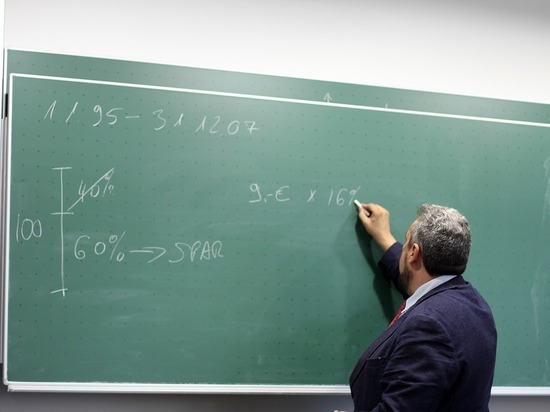 1 / 95 - 31 12 07
40%
9.-€ × 16%
100
60% → SPAR